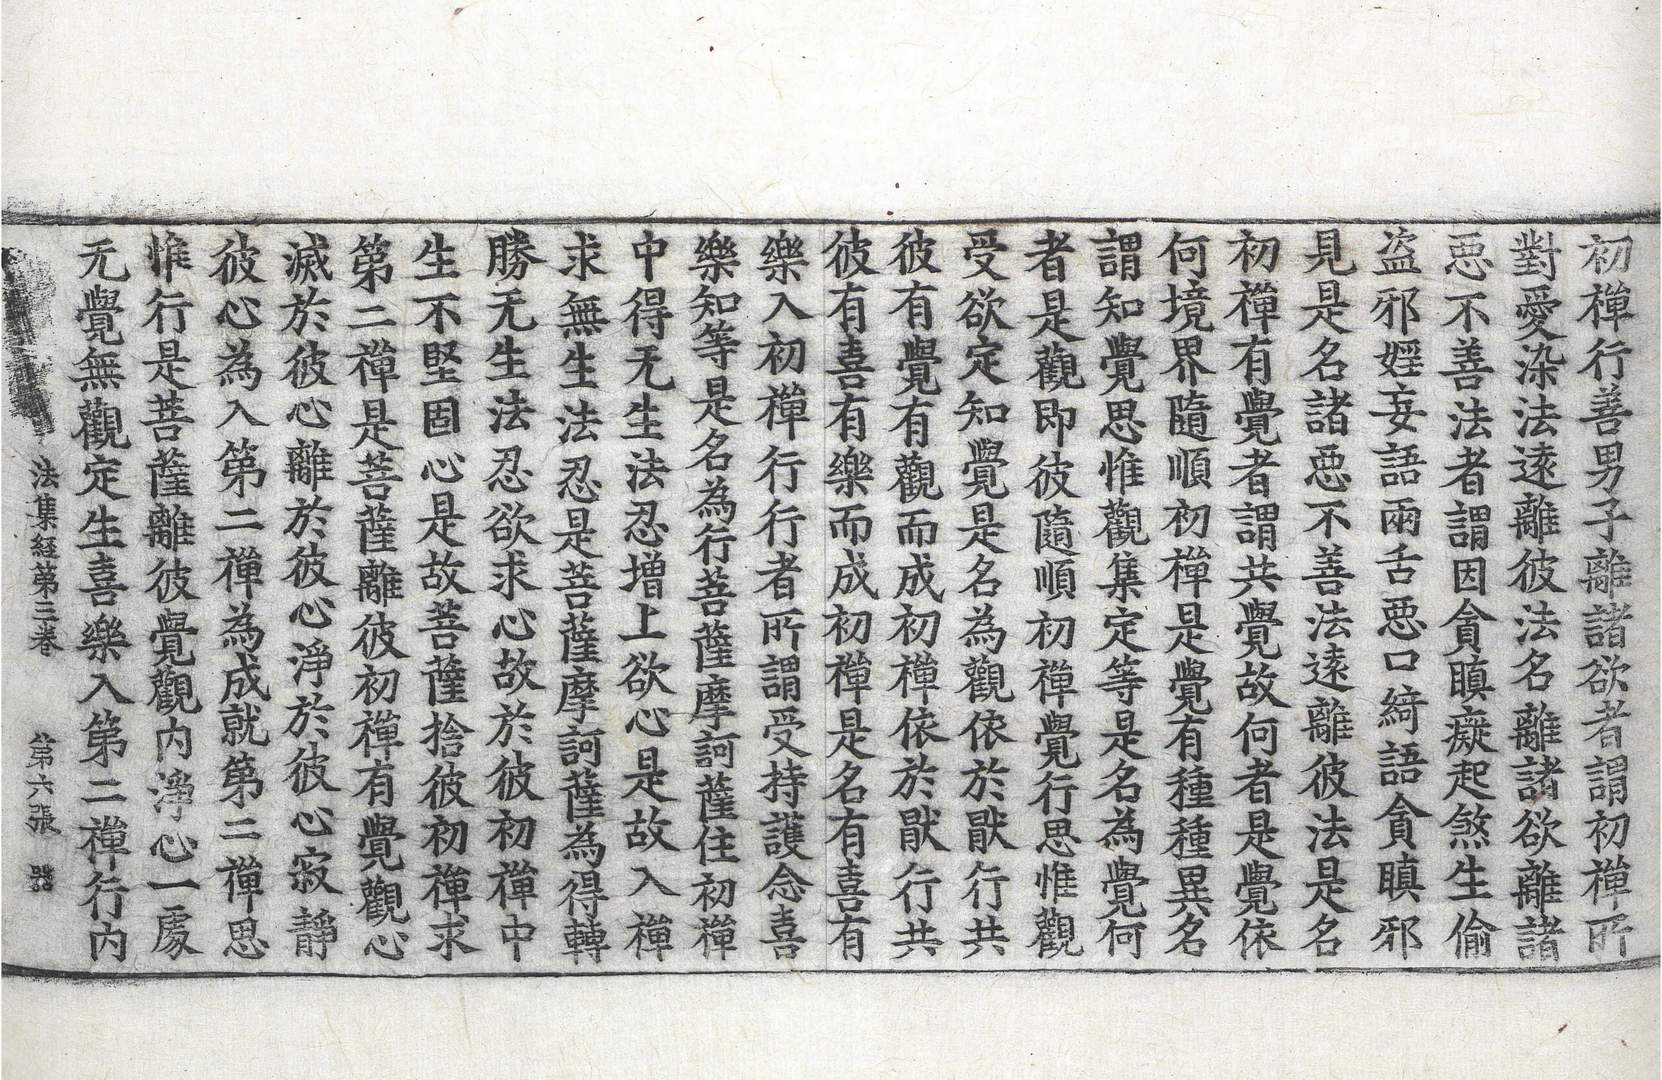 初禪行善男子離諸欲者謂初禪所
對愛染法遠離彼法名離諸欲離諸
惡不善法者謂因貪瞋癡起煞生偷
盜邪婬妄語兩舌惡口綺語貪瞋邪
見是名諸惡不善法遠離彼法是名
初禪有覺者謂共覺故何者是覺依
何境界隨順初禪是覺有種種異名
謂知覺思惟觀集定等是名為覺何
者是觀即彼隨順初禪覺行思惟觀
受欲定知覺是名為觀依於猒行共
彼有覺有觀而成初禪依於猒行共
彼有喜有樂而成初禪是名有喜有
樂入初禪行行者所謂受持護念喜
樂知等是名為行菩薩摩訶薩住初禪
中得无生法忍增上欲心是故入禪
求無生法忍是菩薩摩訶薩為得轉
勝无生法忍欲求心故於彼初禪中
生不堅固心是故菩薩捨彼初禪求
第二禪是菩薩離彼初禪有覺觀心
滅於彼心離於彼心淨於彼心寂靜
彼心為入第二禪為成就第二禪思
惟行是菩薩離彼覺觀內淨心一處
无覺無觀定生喜樂入第二禪行內
法集経第三卷 第六張 器